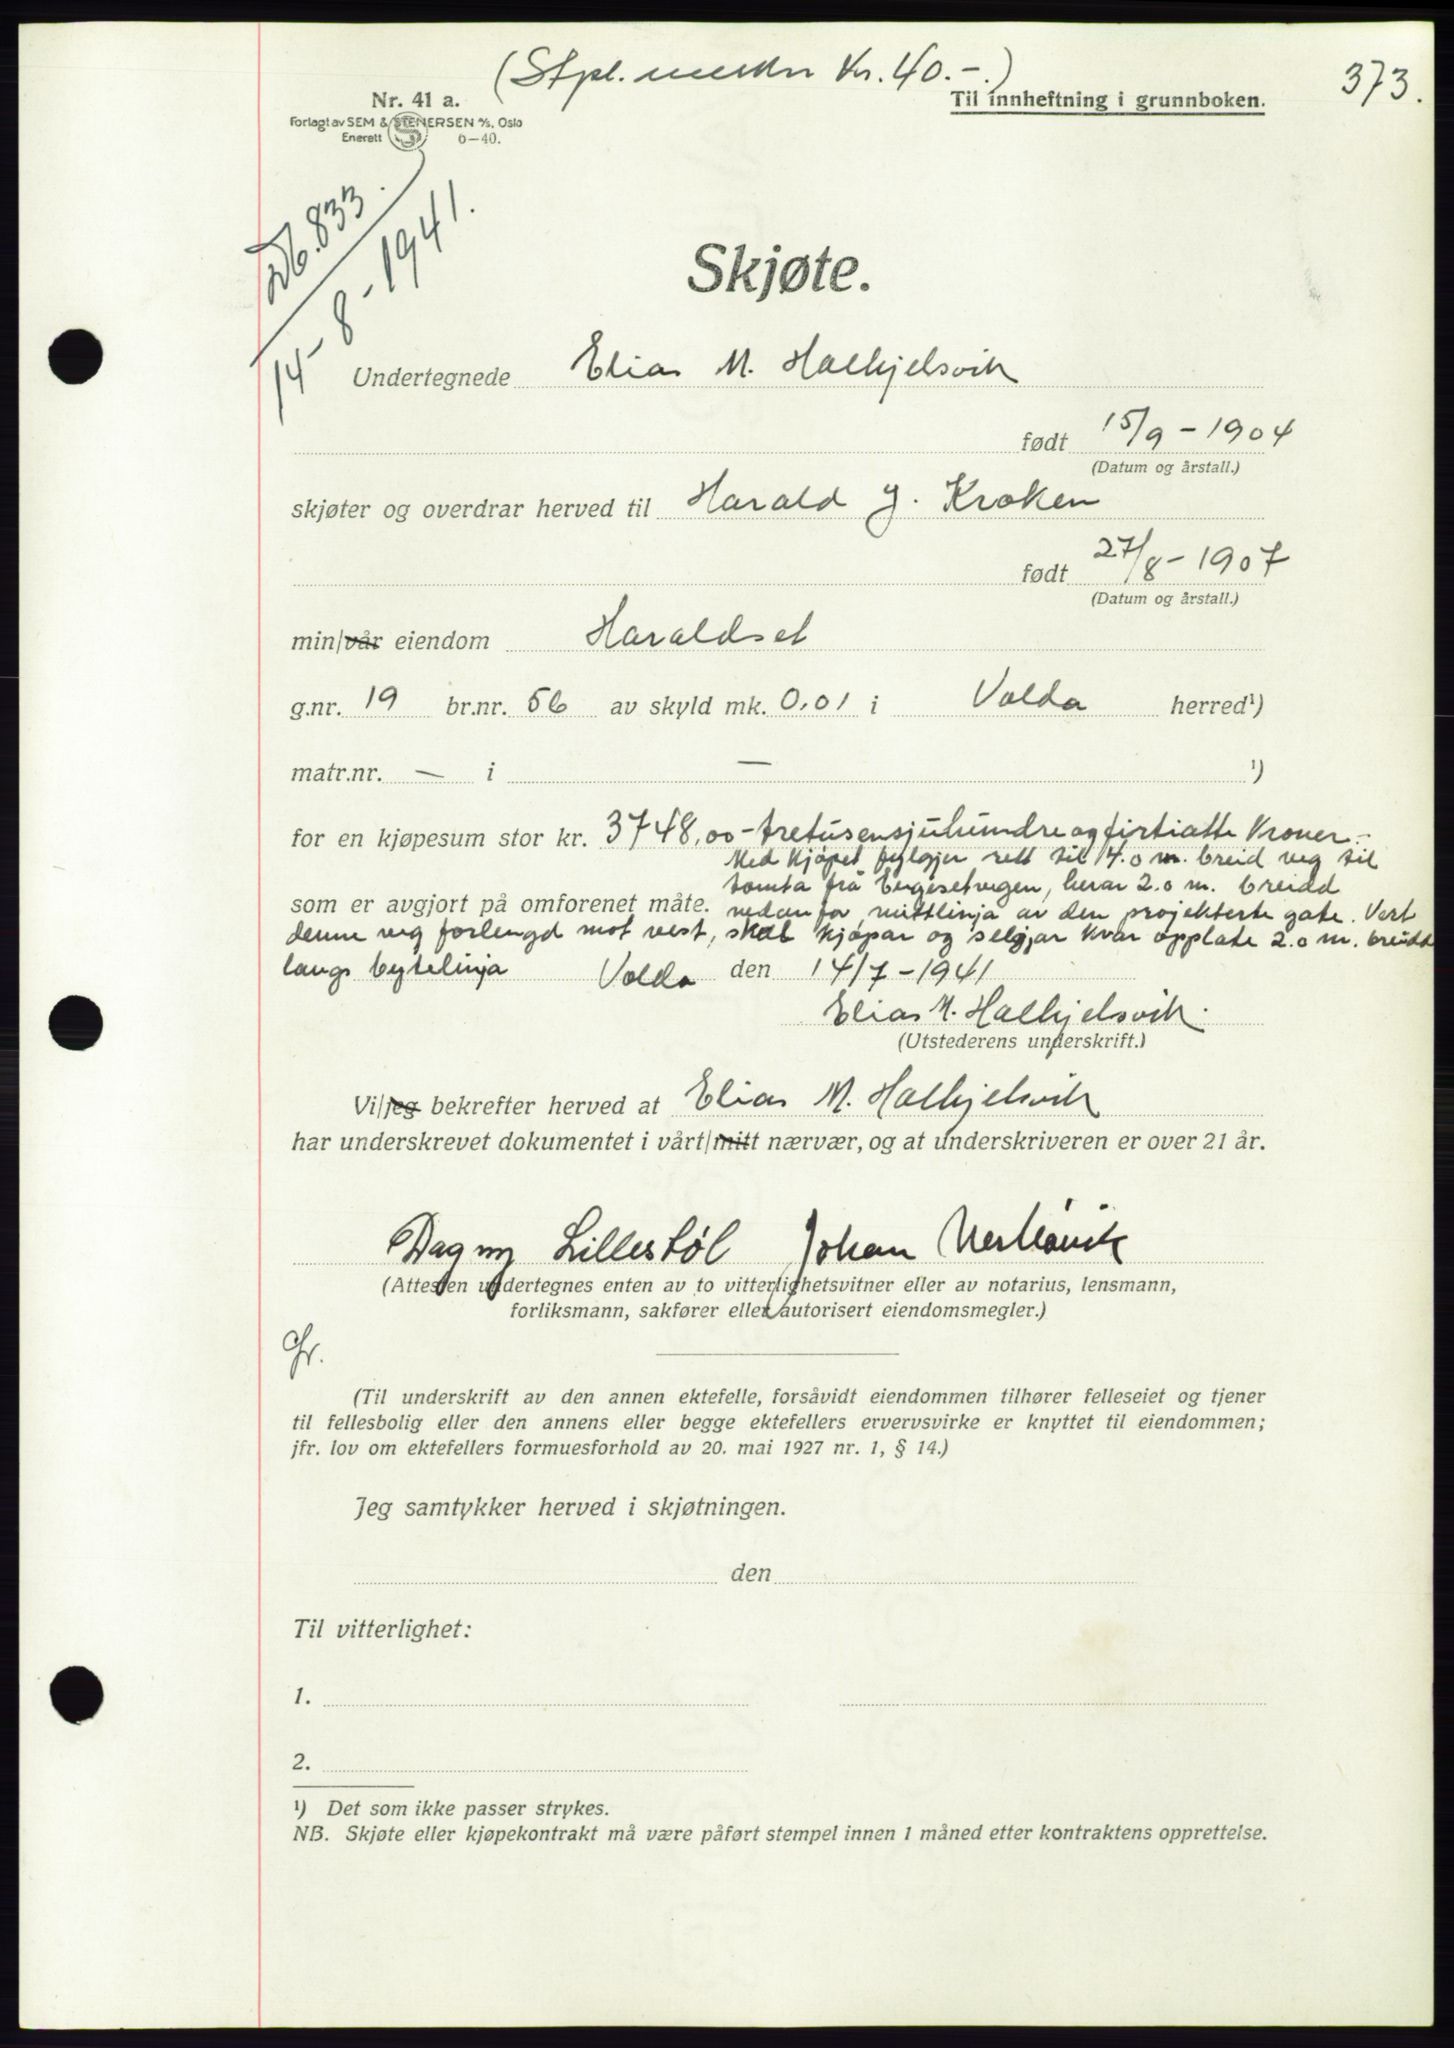 (Stpl. merker Kr. 40.-.)
373.
Nr. 41 a.
Til innheftning i grunnboken.
Forlagt av SEM & STENERSEN A/S, Oslo
Enerett 6-40.
Db. 833.
14-8-1941.
Skjøte.
Undertegnede Elias M. Halkjelsvik
født 15/9-1904
(Datum og årstall.)
skjøter og overdrar herved til Harald J. Kroken
født 27/8-1907
(Datum og årstall.)
min/vår eiendom Haraldset
g.nr. 19 br.nr. 56 av skyld mk. 0,01 i Volda herred¹)
matr.nr. — i — ¹)
for en kjøpesum stor kr. 3748,00 - tretusensjuhundreogførtiåtte Kroner.-
Med kjøpet fylgjer rett til 4.0 m. breid veg til
tomta frå vegen, herav 2.0 m. breidd
som er avgjort på omforenet måte. nedanfor mittlinja av den projekterte gate. Vert
denne veg forlengd mot vest, skal kjøpar og seljar kvar opplate 2.0 m. breidd
langs bytelinja
Volda den 14/7-1941
Elias M. Halkjelsvik.
(Utstederens underskrift.)
Vi/jeg bekrefter herved at Elias M. Halkjelsvik
har underskrevet dokumentet i vårt/mitt nærvær, og at underskriveren er over 21 år.
Dagny Lillestøl Johan
(Attesten undertegnes enten av to vitterlighetsvitner eller av notarius, lensmann,
forliksmann, sakfører eller autorisert eiendomsmegler.)
(Til underskrift av den annen ektefelle, forsåvidt eiendommen tilhører felleseiet og tjener
til fellesbolig eller den annens eller begge ektefellers ervervsvirke er knyttet til eiendommen;
jfr. lov om ektefellers formuesforhold av 20. mai 1927 nr. 1, § 14.)
Jeg samtykker herved i skjøtningen.
den
Til vitterlighet:
1.
2.
¹) Det som ikke passer strykes.
NB. Skjøte eller kjøpekontrakt må være påført stempel innen 1 måned etter kontraktens opprettelse.